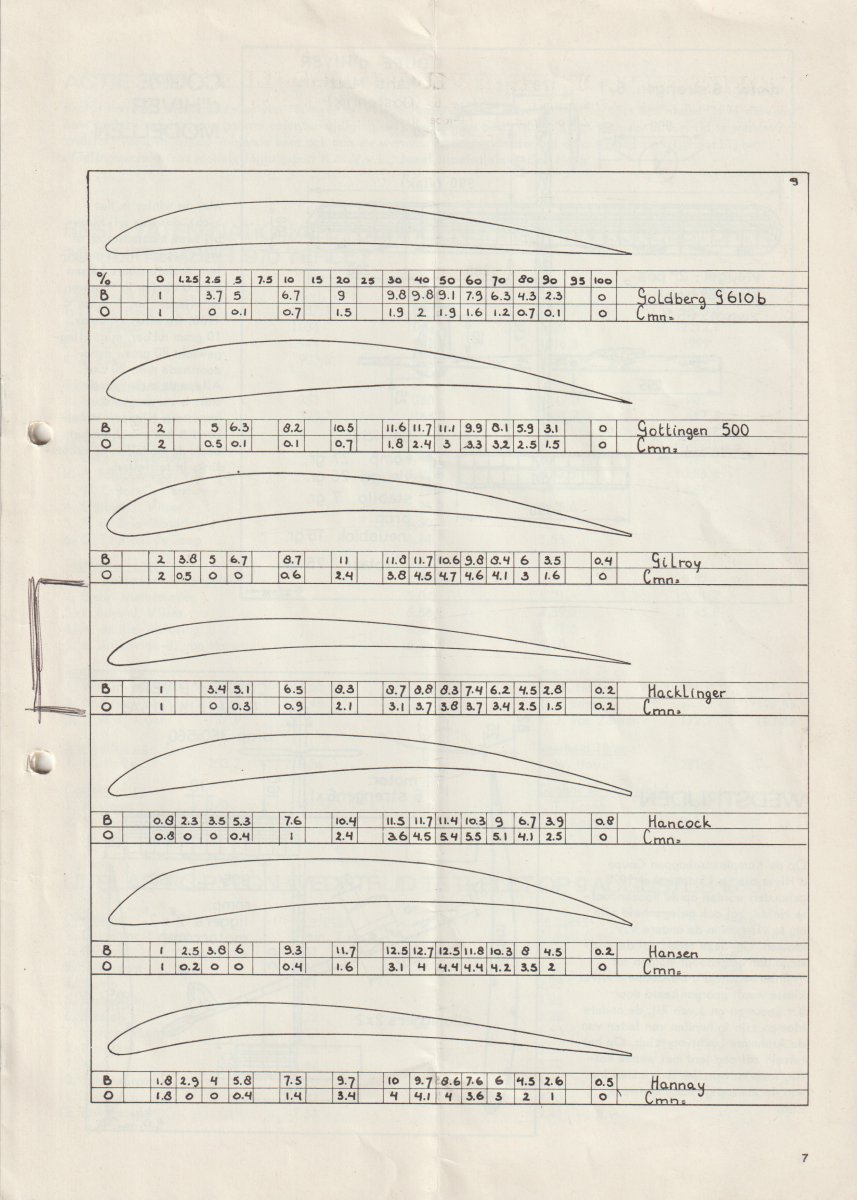 9
% 0 1.25 2.5 5 7.5 10 15 20 25 30 40 50 60 70 80 90 95 100
B 1 3.7 5 6.7 9 9.8 9.8 9.1 7.9 6.3 4.3 2.3 0 Goldberg G610b
O 1 0 0.1 0.7 1.5 1.9 2 1.9 1.6 1.2 0.7 0.1 0 Cmn=
B 2 5 6.3 8.2 10.5 11.6 11.7 11.1 9.9 8.1 5.9 3.1 0 Gottingen 500
O 2 0.5 0.1 0.1 0.7 1.8 2.4 3 3.3 3.2 2.5 1.5 0 Cmn=
B 2 3.8 5 6.7 8.7 11 11.8 11.7 10.6 9.8 8.4 6 3.5 0.4 Gilroy
O 2 0.5 0 0 0.6 2.4 3.8 4.5 4.7 4.6 4.1 3 1.6 0 Cmn=
B 1 3.4 5.1 6.5 8.3 8.7 8.8 8.3 7.4 6.2 4.5 2.8 0.2 Hacklinger
O 1 0 0.3 0.9 2.1 3.1 3.7 3.8 3.7 3.4 2.5 1.5 0.2 Cmn=
B 0.8 2.3 3.5 5.3 7.6 10.4 11.5 11.7 11.4 10.3 9 6.7 3.9 0.8 Hancock
O 0.8 0 0 0.4 1 2.4 3.6 4.5 5.4 5.5 5.1 4.1 2.5 0 Cmn=
B 1 2.5 3.8 6 9.3 11.7 12.5 12.7 12.5 11.8 10.3 8 4.5 0.2 Hansen
O 1 0.2 0 0 0.4 1.6 3.1 4 4.4 4.4 4.2 3.5 2 0 Cmn=
B 1.8 2.9 4 5.8 7.5 9.7 10 9.7 8.6 7.6 6 4.5 2.6 0.5 Hannay
O 1.8 0 0 0.4 1.4 3.4 4 4.1 4 3.6 3 2 1 0 Cmn=
7